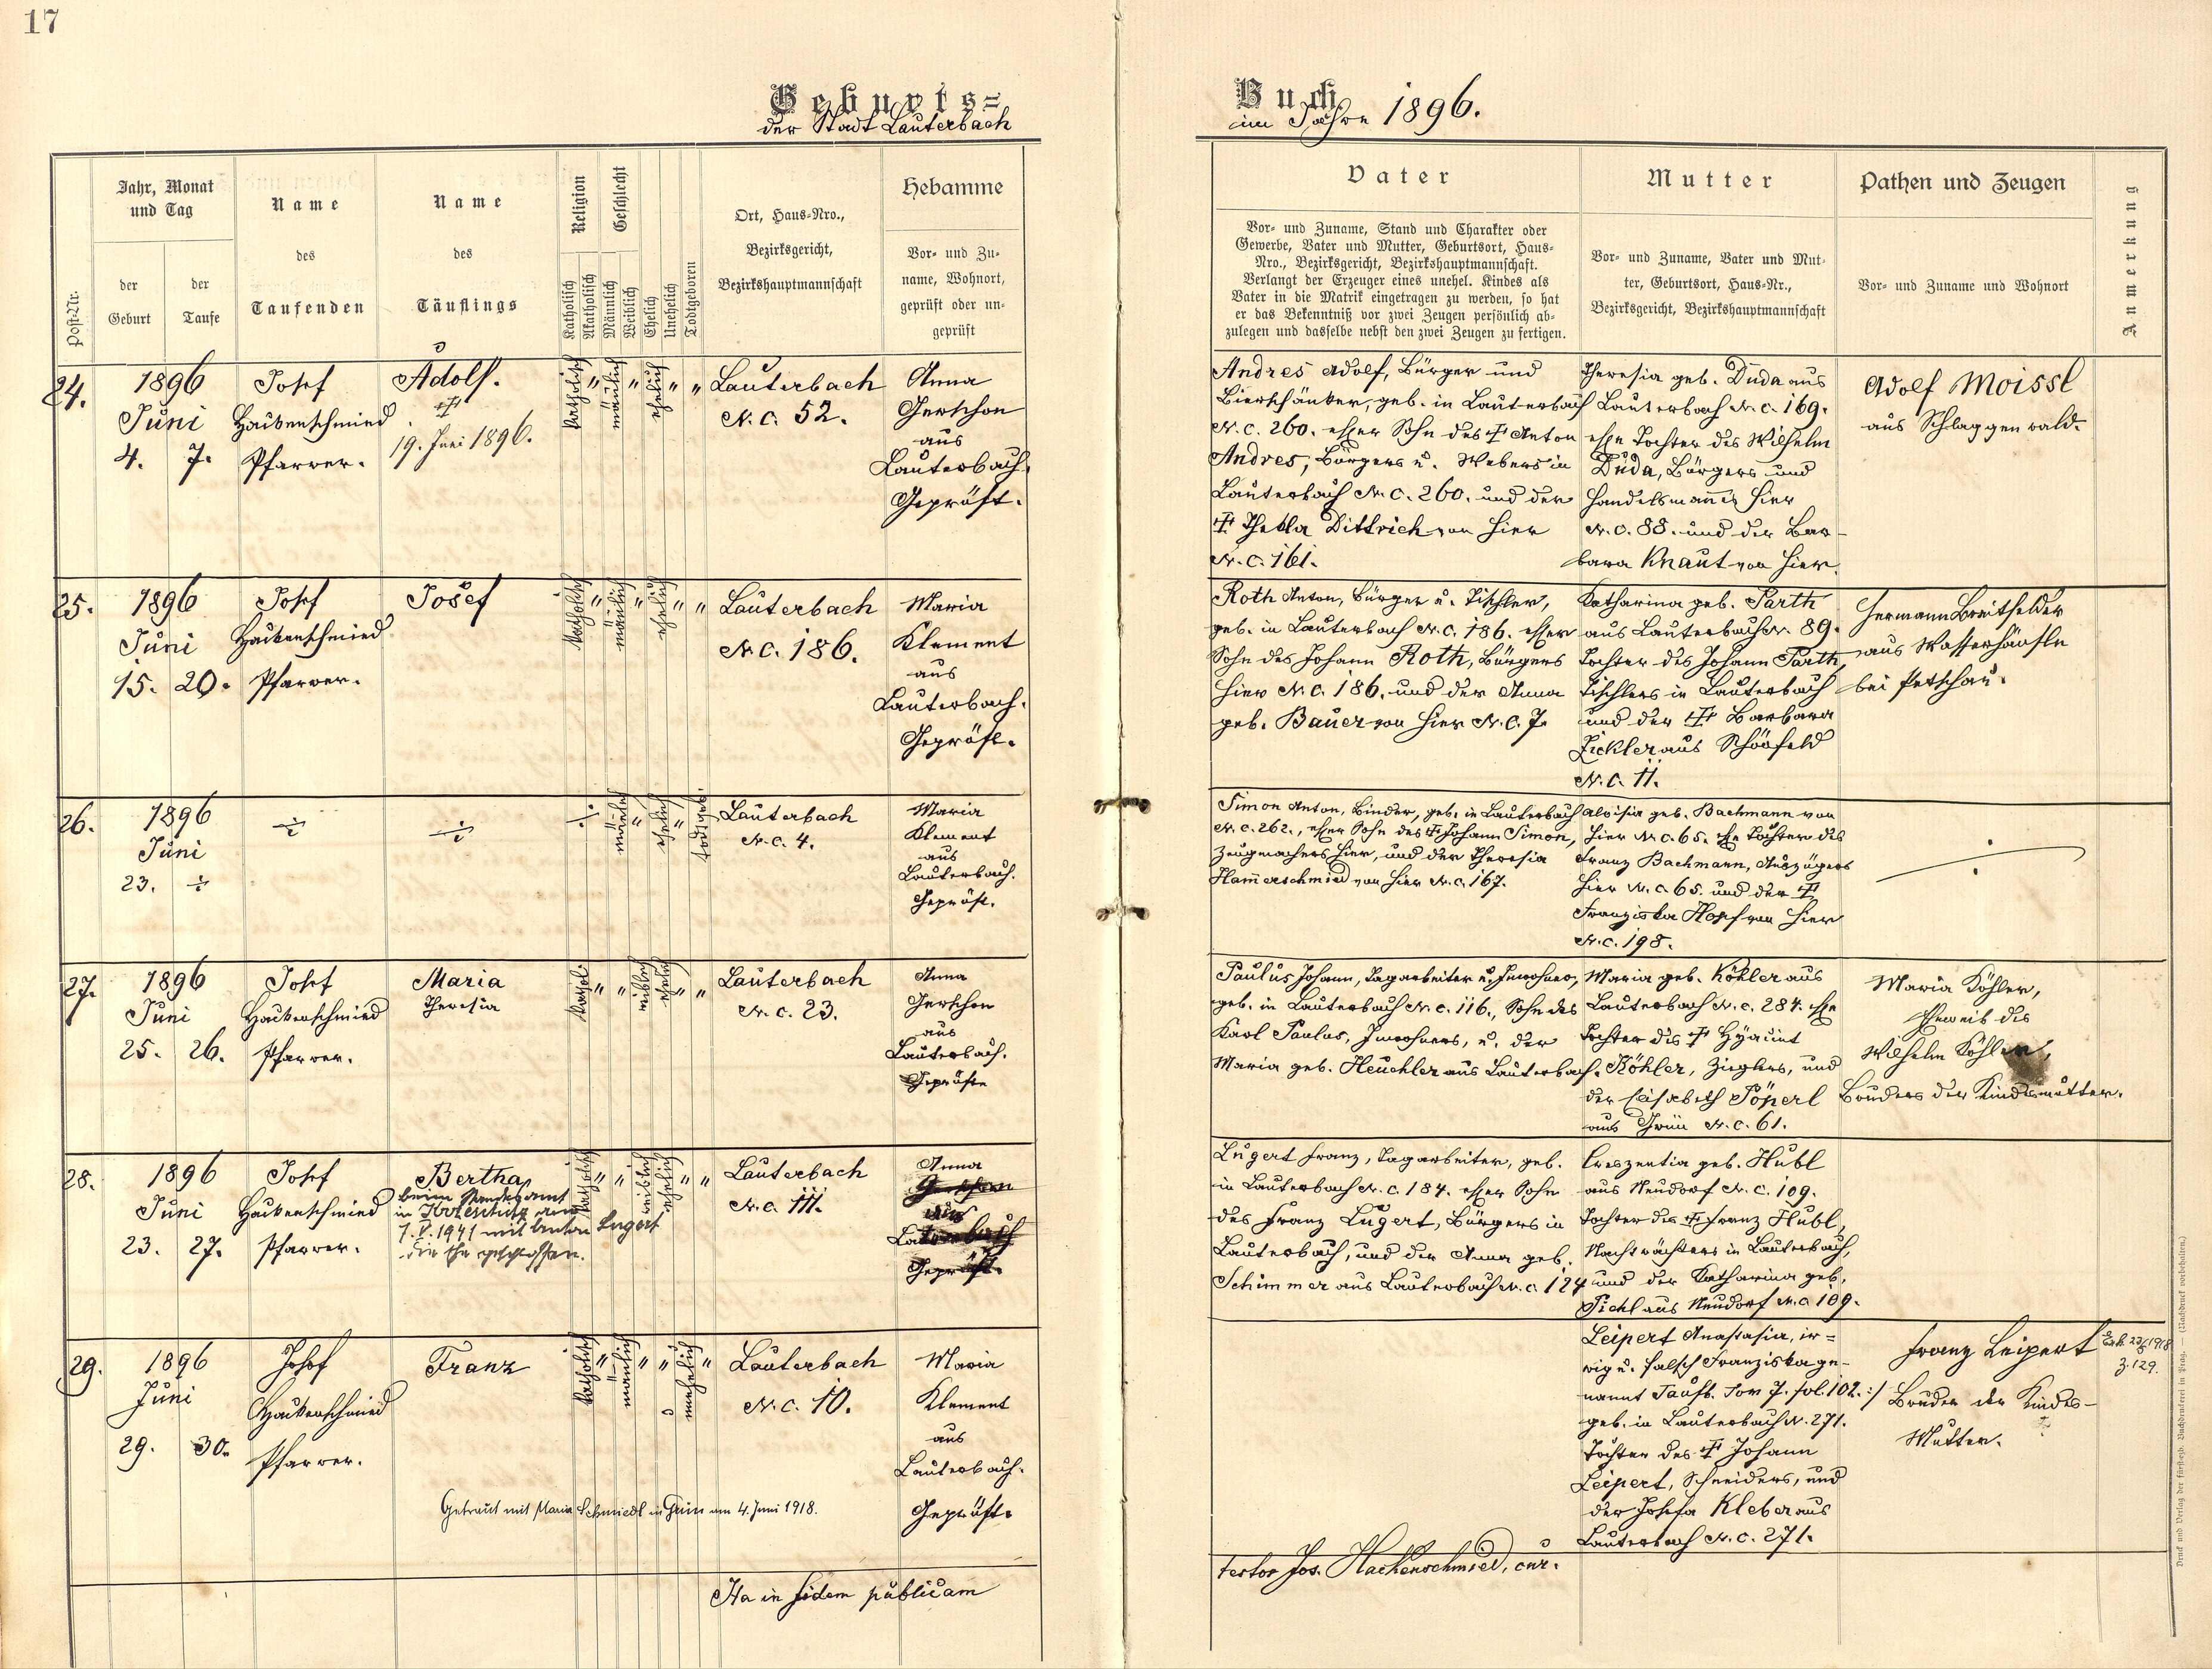 17
Geburts=
der Stadt Lauterbach
Buch
im Jahre 1896.
Post-Nr.
Jahr, Monat
und Tag
der
Geburt
der
Taufe
Name
des
Taufenden
Name
des
Täuflings
Religion
Katholisch
Akatholisch
Geschlecht
Männlich
Weiblich
Ehelich
Unehelich
Todtgeboren
Ort, Haus-Nro.,
Bezirksgericht,
Bezirkshauptmannschaft
Hebamme
Vor- und Zu-
name, Wohnort,
geprüft oder un-
geprüft
Vater
Vor- und Zuname, Stand und Charakter oder
Gewerbe, Vater und Mutter, Geburtsort, Haus-
Nro., Bezirksgericht, Bezirkshauptmannschaft.
Verlangt der Erzeuger eines unehel. Kindes als
Vater in die Matrik eingetragen zu werden, so hat
er das Bekenntniß vor zwei Zeugen persönlich ab-
zulegen und dasselbe nebst den zwei Zeugen zu fertigen.
Mutter
Vor- und Zuname, Vater und Mut-
ter, Geburtsort, Haus-Nr.,
Bezirksgericht, Bezirkshauptmannschaft
Pathen und Zeugen
Vor- und Zuname und Wohnort
Anmerkung
24.
1896
Juni
4. 7.
Josef
Hackenschmied
Pfarrer.
Adolf.
19. Juni 1896.
katholisch " mänlich " ehelich " "
Lauterbach
N. C. 52.
Anna
Gerschon
aus
Lauterbach.
Geprüft.
Andres Adolf, Bürger und
Bierschänker, geb. in Lauterbach
N. C. 260. ehler Sohn des ☩ Anton
Andres, Bürgers u. Webers in
Lauterbach N. C. 260. und der
☩ Thekla Dittrich von hier
N. C. 161.
Theresia geb. Duda aus
Lauterbach N. C. 169.
ehle Tochter des Wilhelm
Duda, Bürgers und
Handelsmannes hier
N. C. 88. und der Bar-
bara Knaut von hier.
Adolf Moissl
aus Schlaggenwald.
25.
1896
Juni
15. 20.
Josef
Hackenschmied
Pfarrer.
Josef
katholisch " mänlich " ehelich " "
Lauterbach
N. C. 186.
Maria
Klement
aus
Lauterbach.
Geprüft.
Roth Anton, Bürger u. Tischler,
geb. in Lauterbach N. C. 186. ehler
Sohn des Johann Roth, Bürgers
hier N. C. 186. und der Anna
geb. Bauer von hier N. C. 7.
Katharina geb. Parth
aus Lauterbach N. 89.
Tochter des Johann Parth,
Tischlers in Lauterbach
und der ☩ Barbara
Zickler aus Schönfeld
N. C. 11.
Hermann Breitfelder
aus Wasserhäusln
bei Petschau.
26.
1896
Juni
23. ÷
÷
÷
÷ mänlich " ehelich " todtgeb.
Lauterbach
N. C. 4.
Maria
Klement
aus
Lauterbach.
Geprüft.
Simon Anton, Binder, geb. in Lauterbach
N. C. 262., ehler Sohn des ☩ Johann Simon,
Zeugmachers hier, und der Theresia
Hamerschmied von hier N. C. 167.
Aloisia geb. Bachmann von
hier N. C. 65. ehle Tochter des
Franz Bachmann, Auszüglers
hier N. C. 65. und der ☩
Franziska Hopf von hier
N. C. 198.
÷
27.
1896
Juni
25. 26.
Josef
Hackenschmied
Pfarrer.
Maria
Theresia
kathol. " " weiblich ehelich " "
Lauterbach
N. C. 23.
Anna
Gerschon
aus
Lauterbach.
Geprüft.
Paulus Johann, Tagarbeiter u. Inwohner,
geb. in Lauterbach N. C. 116., Sohn des
Karl Paulus, Inwohners, u. der
Maria geb. Heuchler aus Lauterbach.
Maria geb. Köhler aus
Lauterbach N. C. 284. ehle
Tochter des ☩ Hyazint
Köhler, Zieglers, und
der Elisabeth Pöperl
aus Grün N. C. 61.
Maria Köhler,
Eheweib des
Wilhelm Köhler,
Bruders der Kindesmutter.
28.
1896
Juni
23. 27.
Josef
Hackenschmied
Pfarrer.
Bertha
beim Standesamt
in
7. V. 1941 mit Anton Lugert
die Ehe geschlossen.
katholisch " " weiblich ehelich " "
Lauterbach
N. C. 111.
Anna
Gerschon
aus
Lauterbach
Geprüft.
Lugert Franz, Tagarbeiter, geb.
in Lauterbach N. C. 184. ehler Sohn
des Franz Lugert, Bürgers in
Lauterbach, und der Anna geb.
Schimmer aus Lauterbach N. C. 124
Kreszentia geb. Hubl
aus Neudorf N. C. 109.
Tochter des ☩ Franz Hubl,
Nachtwächters in Lauterbach,
und der Katharina geb.
Pichl aus Neudorf N. C. 109.
29.
1896
Juni
29. 30.
Josef
Hackenschmied
Pfarrer.
Franz
katholisch " mänlich " " unehelich "
Lauterbach
N. C. 10.
Maria
Klement
aus
Lauterbach.
Geprüft.
Getraut mit Maria Schmiedl in Grün am 4. Juni 1918.
Leipert Anastasia, ir=
rig u. falsch Franziska ge-
nannt Taufb. Tom 7. fol. 102. :/
geb. in Lauterbach N. 271.
Tochter des ☩ Johann
Leipert, Schneiders, und
der Josefa Kleber aus
Lauterbach N. C. 271.
Franz Leipert
Bruder der Kindes-
Mutter.
1918
Z. 129.
Ita in fidem publicam
testor Jos. Hackenschmied, cur.
Druck und Verlag der fürsterzb. Buchdruckerei in Prag. (Nachdruck vorbehalten.)